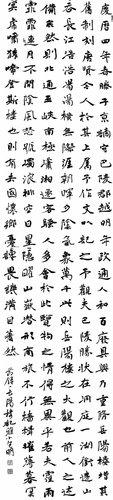 慶曆四年春滕子京謫守巴陵郡越明年政通人和百廢具興乃重修岳陽樓增其
舊制刻唐賢今人詩賦於其上屬予作文以記之予觀夫巴陵勝狀在洞庭一湖銜遠山
吞長江浩浩湯湯橫無際涯朝暉夕陰氣象萬千此則岳陽樓之大觀也前人之述
備矣然則北通巫峽南極瀟湘遷客騷人多會於此覽物之情得無異乎若夫霪雨
霏霏連月不開陰風怒號濁浪排空日星隱曜山岳潛形商旅不行檣傾楫摧薄暮冥
冥虎嘯猿啼登斯樓也則有去國懷鄉憂讒畏譏